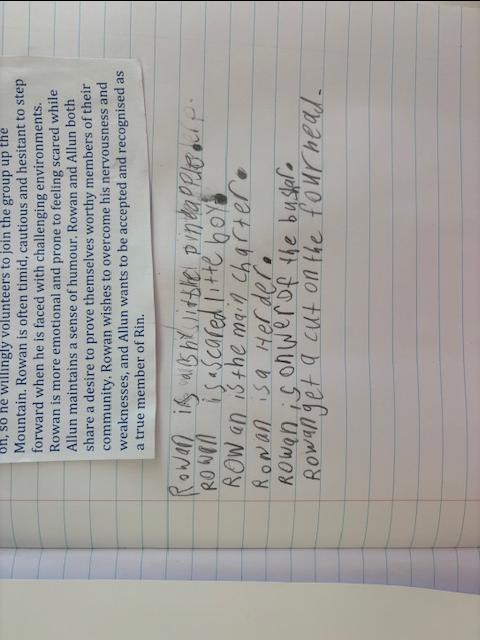 on, so he willingly volunteers to join the group up the
Mountain. Rowan is often timid, cautious and hesitant to step
forward when he is faced with challenging environments.
Rowan is more emotional and prone to feeling scared while
Allun maintains a sense of humour. Rowan and Allun both
share a desire to prove themselves worthy members of their
community. Rowan wishes to overcome his nervousness and
weaknesses, and Allun wants to be accepted and recognised as
a true member of Rin.
Rowan is little
Rowan is a scared litte boy.
ROWan is the main charter.
Rowan is a Herder.
Rowan is onwer of the
Rowan get a cut on the four head.